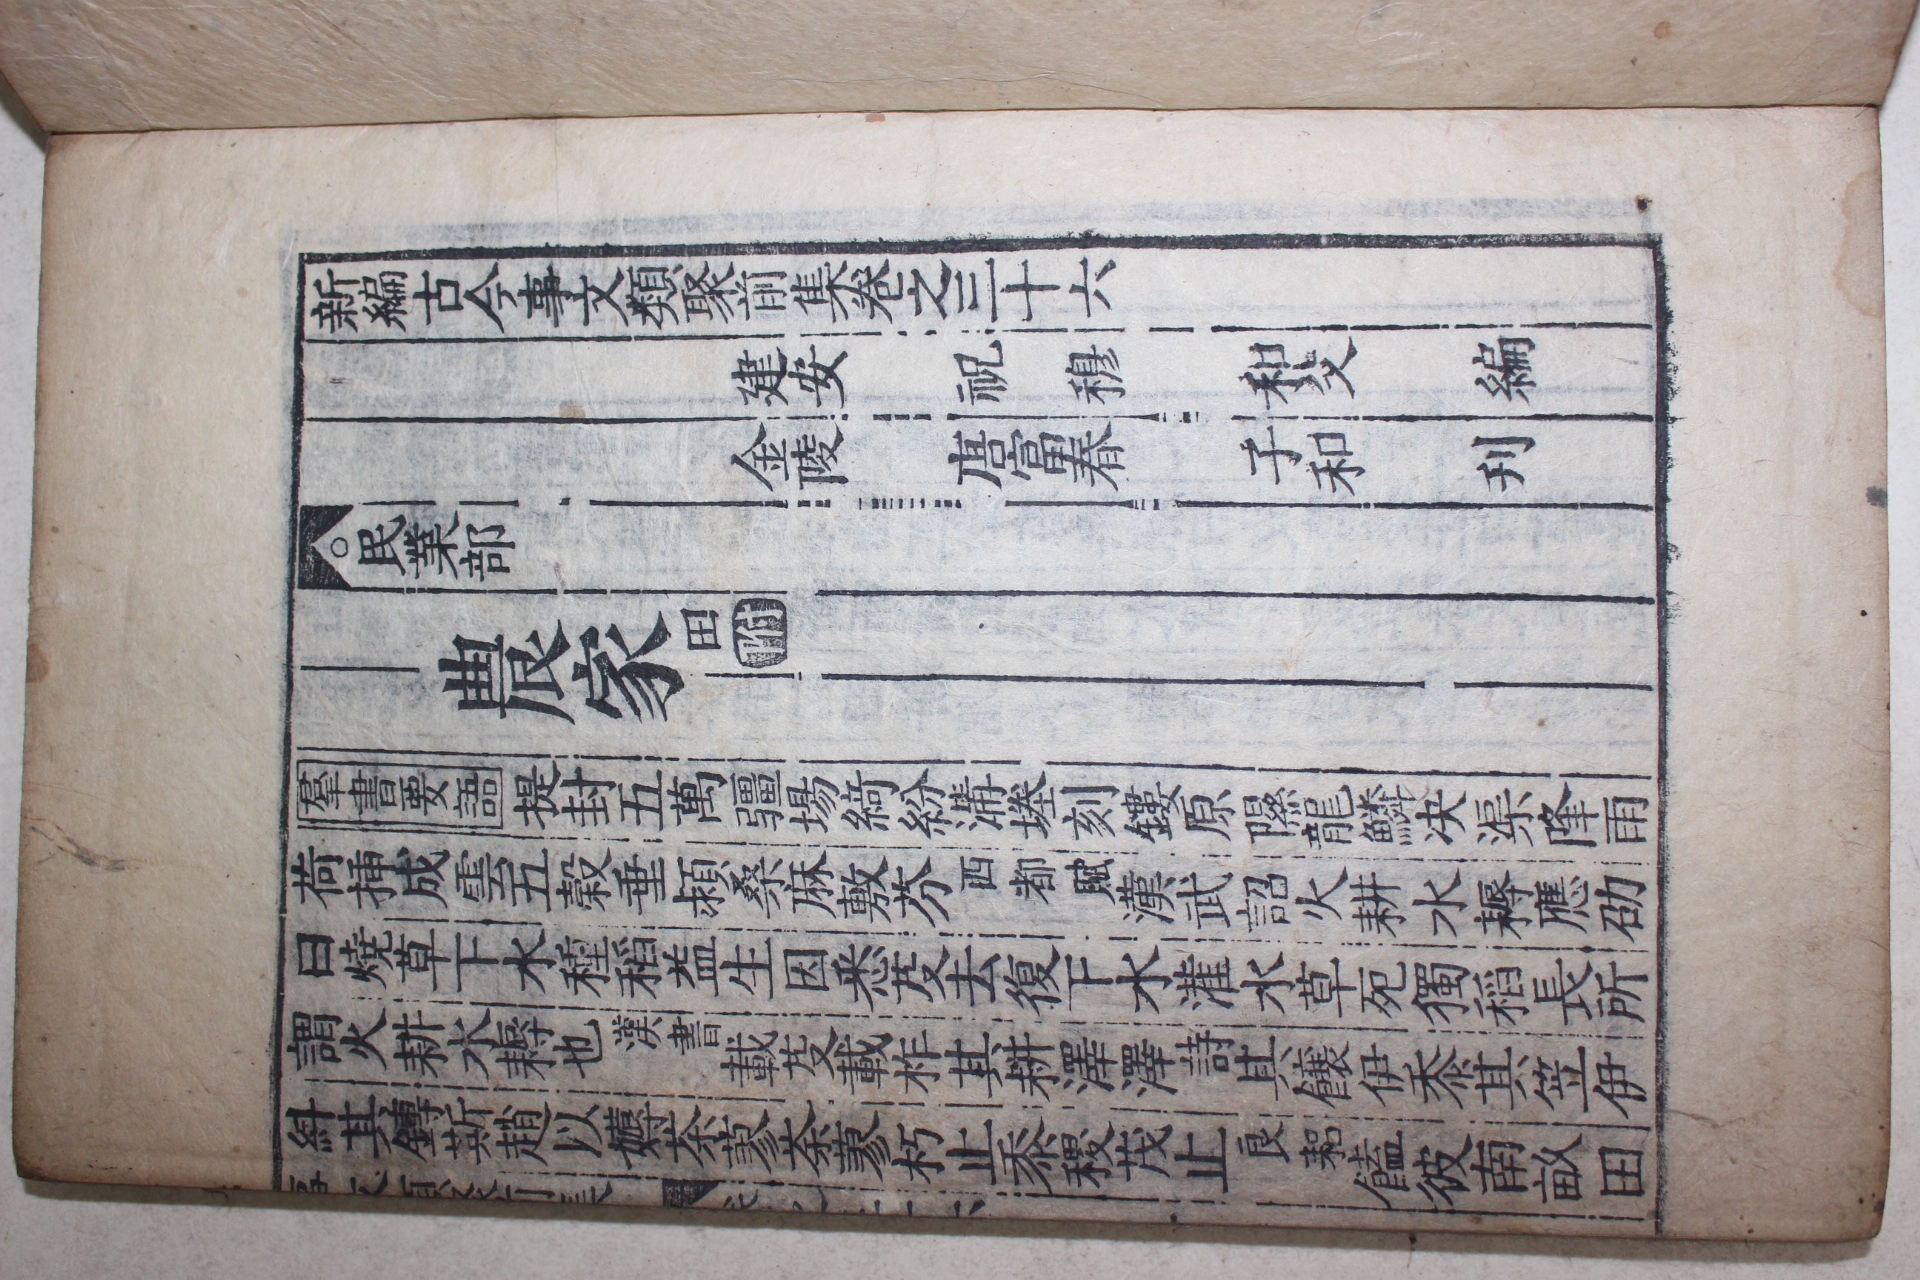 新編古今事文類聚前集卷之三十六
建安 祝 穆 和父 編
金陵 唐富春 子和 刋
○民業部
農家 田附
羣書要語 提封五萬疆場綺紛溝塍刻鏤原隰龍鱗决渠降雨
荷揷成雲五穀垂穎桑麻敷芬 西都賦 漢武詔火耕水耨應劭
曰燒草下水種稻益生因悉芟去復下水灌水草死獨稻長所
謂火耕水耨也 漢書 載芟載柞其耕澤澤 詩 其饟伊黍其笠伊
糾其鎛斯趙以薅荼蓼荼蓼朽止黍稷茂止 良耜 饁彼南畝田